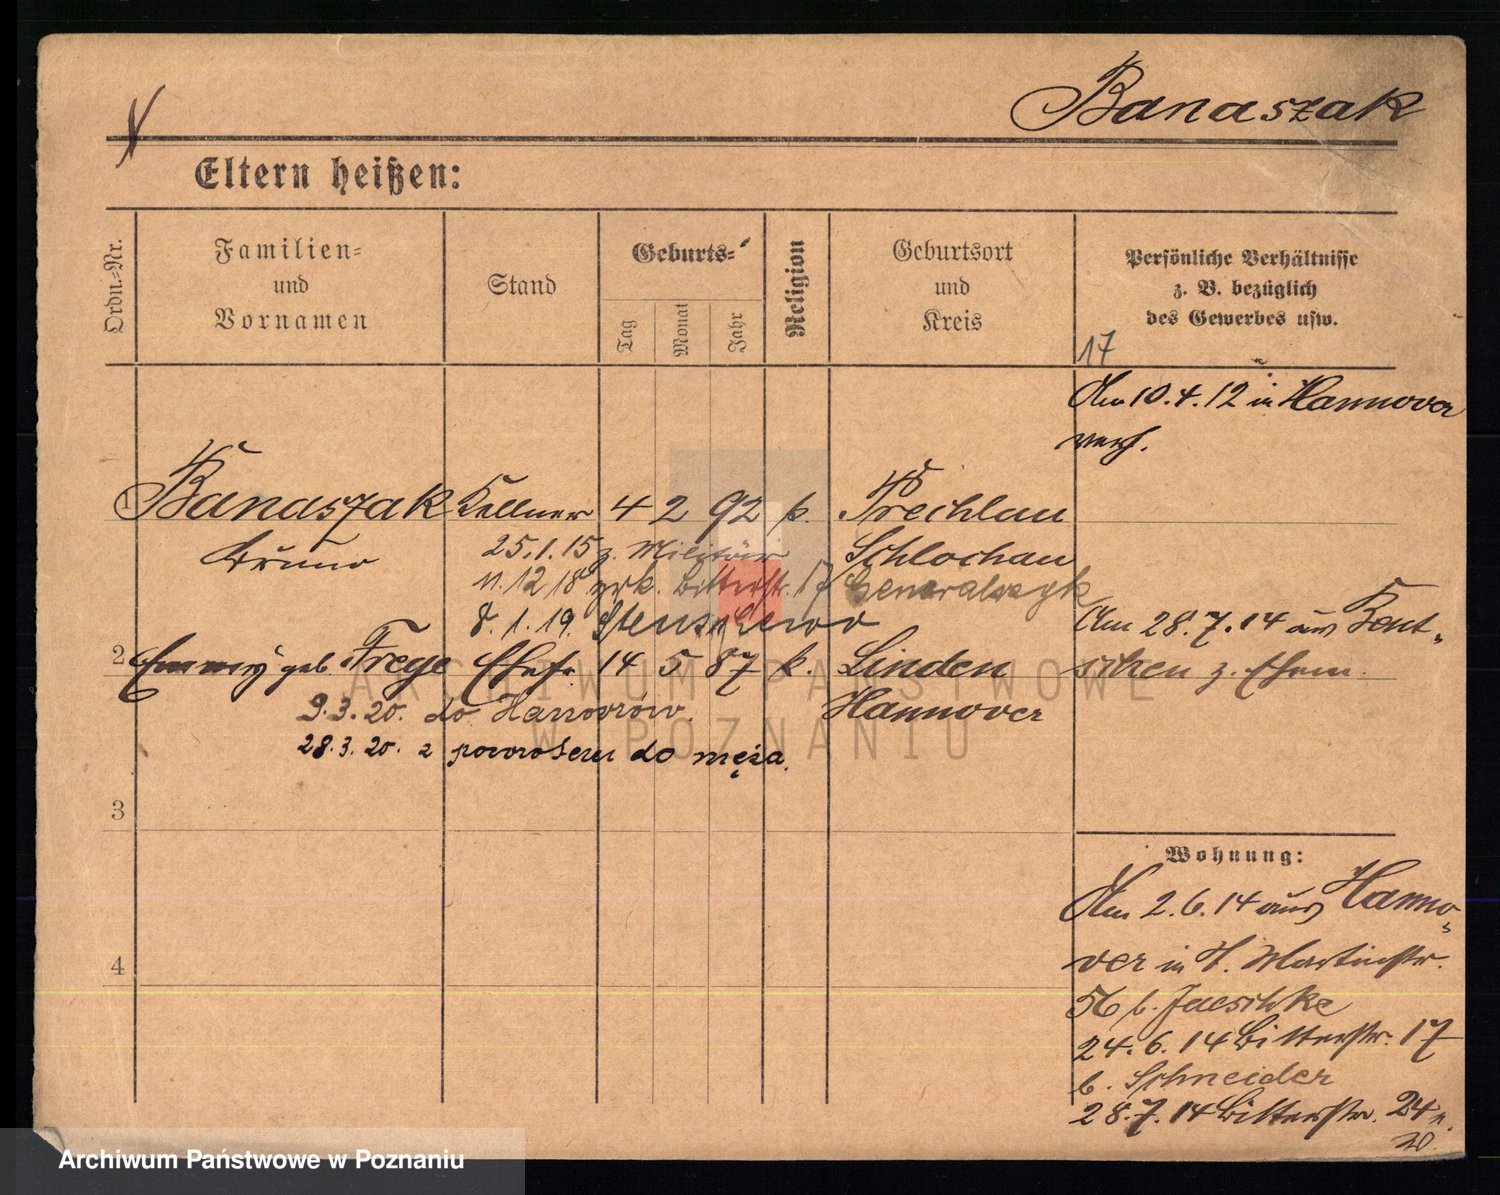 Banaszak
Eltern heißen:
Ordn.-Nr.
Familien-
und
Vornamen
Stand
Geburts-
Tag
Monat
Jahr
Religion
Geburtsort
und
Kreis
Persönliche Verhältnisse
z. B. bezüglich
des Gewerbes usw.
17
Am 10.4.12 in Hannover
verh.
1 Banaszak Kellner 4 2 92 k. Prechlau
Bruno 25.1.15 z. Militär Schlochau
11.12 18 zrk. Bitterstr. 17
8.1.19.
Am 28.7.14 aus Kent-
schen z. Ehem.
2 Emmy geb. Frege Ehefr. 14 5 87 k. Linden
Hannover
9.3.20. do
28.3.20. z powrotem do męża.
3
4
Wohnung:
Am 2.6.14 aus Hanno-
ver in St. Martinstr.
56 b. Jaeschke
24.6.14 Bitterstr. 17
b. Schneider
28.7.14 Bitterstr. 24
ARCHIWUM PAŃSTWOWE
W POZNANIU
Archiwum Państwowe w Poznaniu